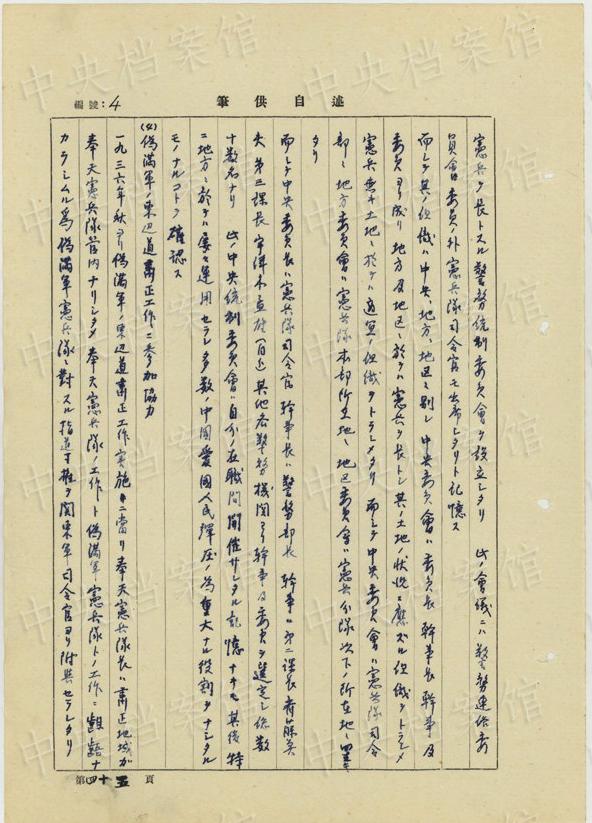 編號:4
筆供自述
憲兵ヲ長トスル警務統制委員會ヲ設立シタリ 此ノ會議ニハ警務連絡委
員會ノ委員ノ外憲兵隊司令官モ出席シタリト記憶ス
而シテ其ノ組織ハ中央、地方、地区ニ別レ 中央委員會ハ委員長 幹事長 幹事及
委員ヨリ成リ 地方及地区ニ於テハ憲兵ヲ長トシ其ノ土地ノ状況ニ應ズル組織ヲトラシメ
憲兵無キ土地ニ於テハ適宜ノ組織ヲトラシメタリ 而シテ中央委員會ハ憲兵隊司令
部ニ 地方委員會ハ憲兵隊本部所在地ニ 地区委員會ハ憲兵分隊以下ノ所在地ニ置キ
タリ
而シテ中央委員長ハ憲兵隊司令官 幹事長ハ警務部長 幹事ハ第二課長斉藤美
夫 第三課長 宇津木孟雄(自己)其他各警務機関ヨリ幹事及委員ヲ選定シ総数
十数名ナリ 此ノ中央統制委員會ハ自分ノ在職間開催サレタル記憶ナキモ其後特
ニ地方ニ於テハ屡々運用セラレ多数ノ中國愛國人民弾圧ノ為重大ナル役割ヲナシタル
モノナルコトヲ確認ス
(4)偽満軍ノ東辺道粛正工作ニ参加協力
一九三六年秋ヨリ偽満軍ノ東辺道粛正工作実施サルニ當リ奉天憲兵隊長ハ粛正地域ガ
奉天憲兵隊管内ナリシタメ奉天憲兵隊ノ工作ト偽満軍ノ憲兵隊トノ工作ニ齟齬ナ
カラシムル為偽満軍憲兵隊ニ對スル指導権ヲ関東軍司令官ヨリ附與セラレタリ
第四十五頁
中央档案馆